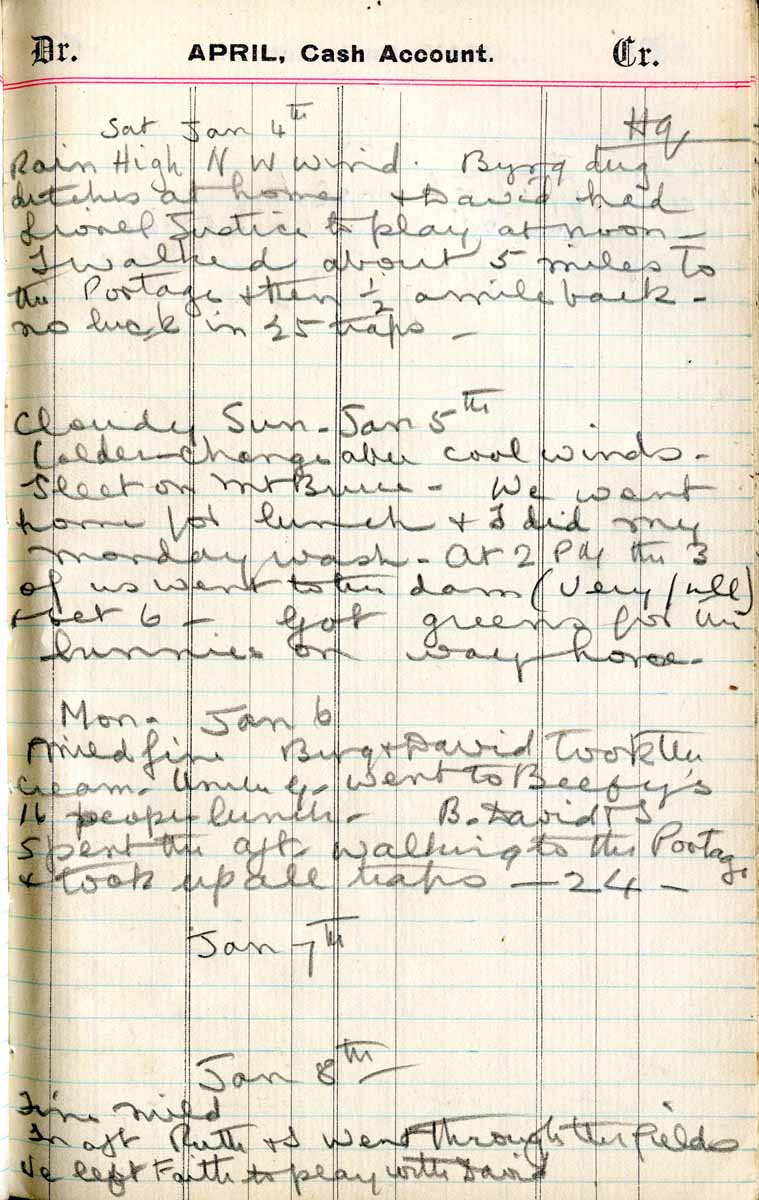 Dr. APRIL, Cash Account. Cr.
Sat Jan 4th Hq
Rain High N W wind. Byrg dug
ditches at home & David had
Lionel Justice to play at noon -
I walked about 5 miles to
the Portage & then ½ a mile back -
no luck in 25 traps -
Cloudy Sun - Jan 5th
Colder - changeable cool winds -
Sleet on Mt Bruce - We went
home for lunch & I did my
Monday wash - At 2 PM the 3
of us went to the dam (very full)
& set 6 - Got greens for the
bunnies on way home -
Mon - Jan 6
A mild fine Byrg & David took the
cream - went to Beefy's
16 people lunch - B - David & I
Spent the aft - walking to the Portage
& took up all traps - 24 -
Jan 7th
Jan 8th
Fine mild
In aft Ruth & I went through the fields
We left Faith to play with David